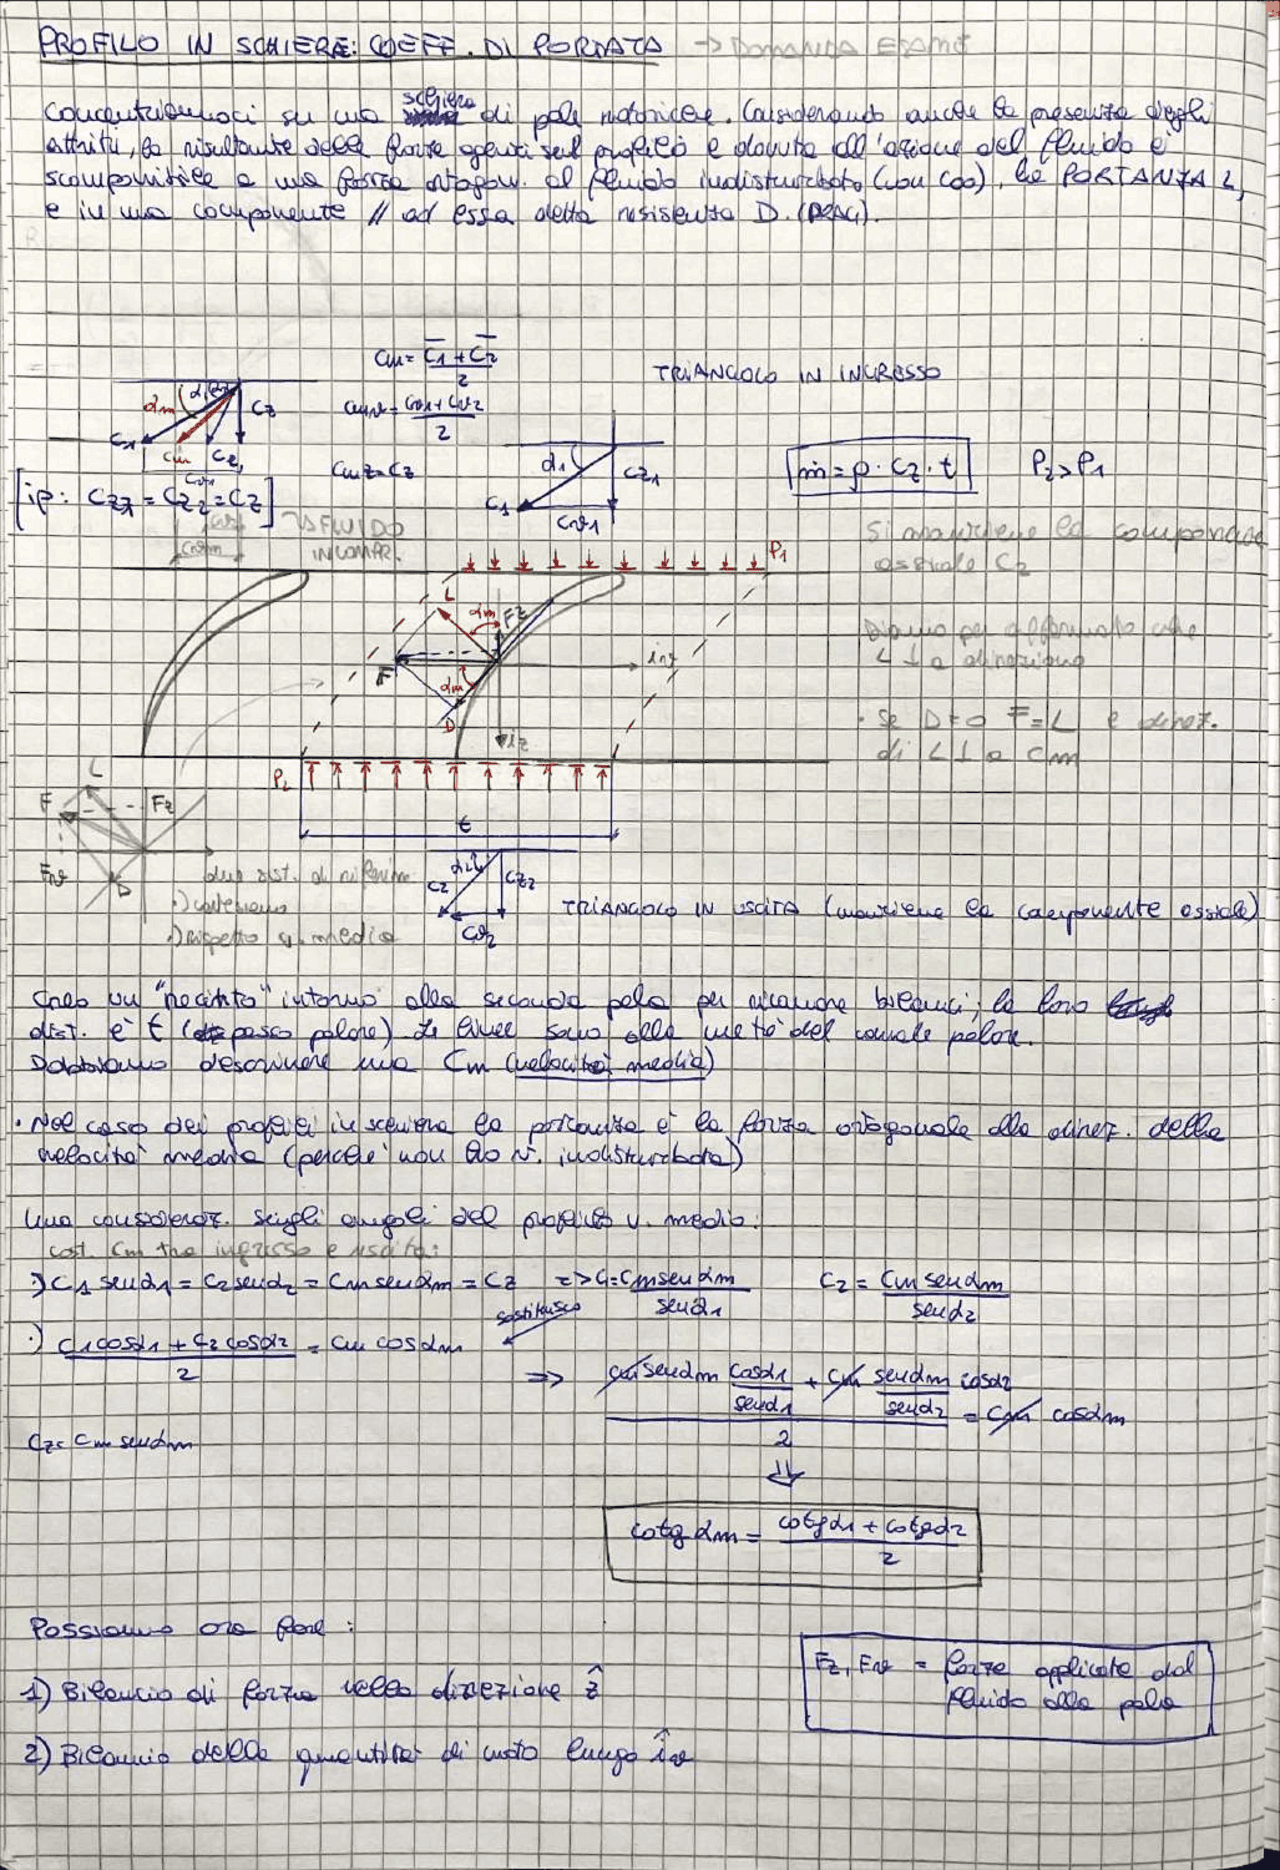 PROFILO IN SCHIERE: COEFF. DI PORTATA → DOMANDA ESAME
Concentriamoci su una schiera di pale rotoriche. Considerando anche la presenza degli
attriti, la risultante delle forze agenti sul profilo e dovuta all'azione del fluido è
scomponibile a una forza ortogon. al fluido indisturbato (non cos), la PORTANZA L,
e in una componente // ad essa detta resistenza D. (DRAG).
cm = c1 + c2 / 2
TRIANGOLO IN INGRESSO
cmϑ = cϑ1 + cϑ2 / 2
cmz = cz
αm
cz
c1
cm
c2
α1
cz1
c1
cϑ1
ṁ = ρ · cz · t
P2 > P1
[ip: cz1 = cz2 = cz]
→ FLUIDO
INCOMPR.
cϑm
Si mantiene la componente
assiale cz
P1
L
αm
Fz
F
αm
D
iϑ
iz
Diamo per affermato che
L ⊥ a direzione
· Se D=0 F=L e direz.
di L ⊥ a cm
P2
t
L
F
Fz
Fϑ
D
due sist. di riferim
·) cartesiano
·) rispetto v. media
α2
c2
cz2
cϑ2
TRIANGOLO IN USCITA (mantiene la componente assiale)
Creo un "recinto" intorno alla seconda pala per ricavare bilanci; la loro
dist. è t (passo palare). Le linee sono alla metà del canale palare.
Dobbiamo descrivere una Cm (velocità media)
· Nel caso dei profili in schiera la portanza è la forza ortogonale alla direz. della
velocità media (perché non ho v. indisturbata)
Una consideraz. sugli angoli del profilo v. media:
cost. cm tra ingresso e uscita:
·) c1 senα1 = c2 senα2 = cm senαm = cz => c1 = cm senαm / senα1 c2 = cm senαm / senα2
sostituisco
·) c1 cosα1 + c2 cosα2 / 2 = cm cosαm
=> cm senαm cosα1 / senα1 + cm senαm / senα2 cosα2 / 2 = cm cosαm
cz = cm senαm
⇓
cotg αm = cotgα1 + cotgα2 / 2
Possiamo ora fare:
Fz, Fϑ = forze applicate dal
fluido alla pala
1) Bilancio di forza nella direzione ẑ
2) Bilancio della quantità di moto lungo îϑ